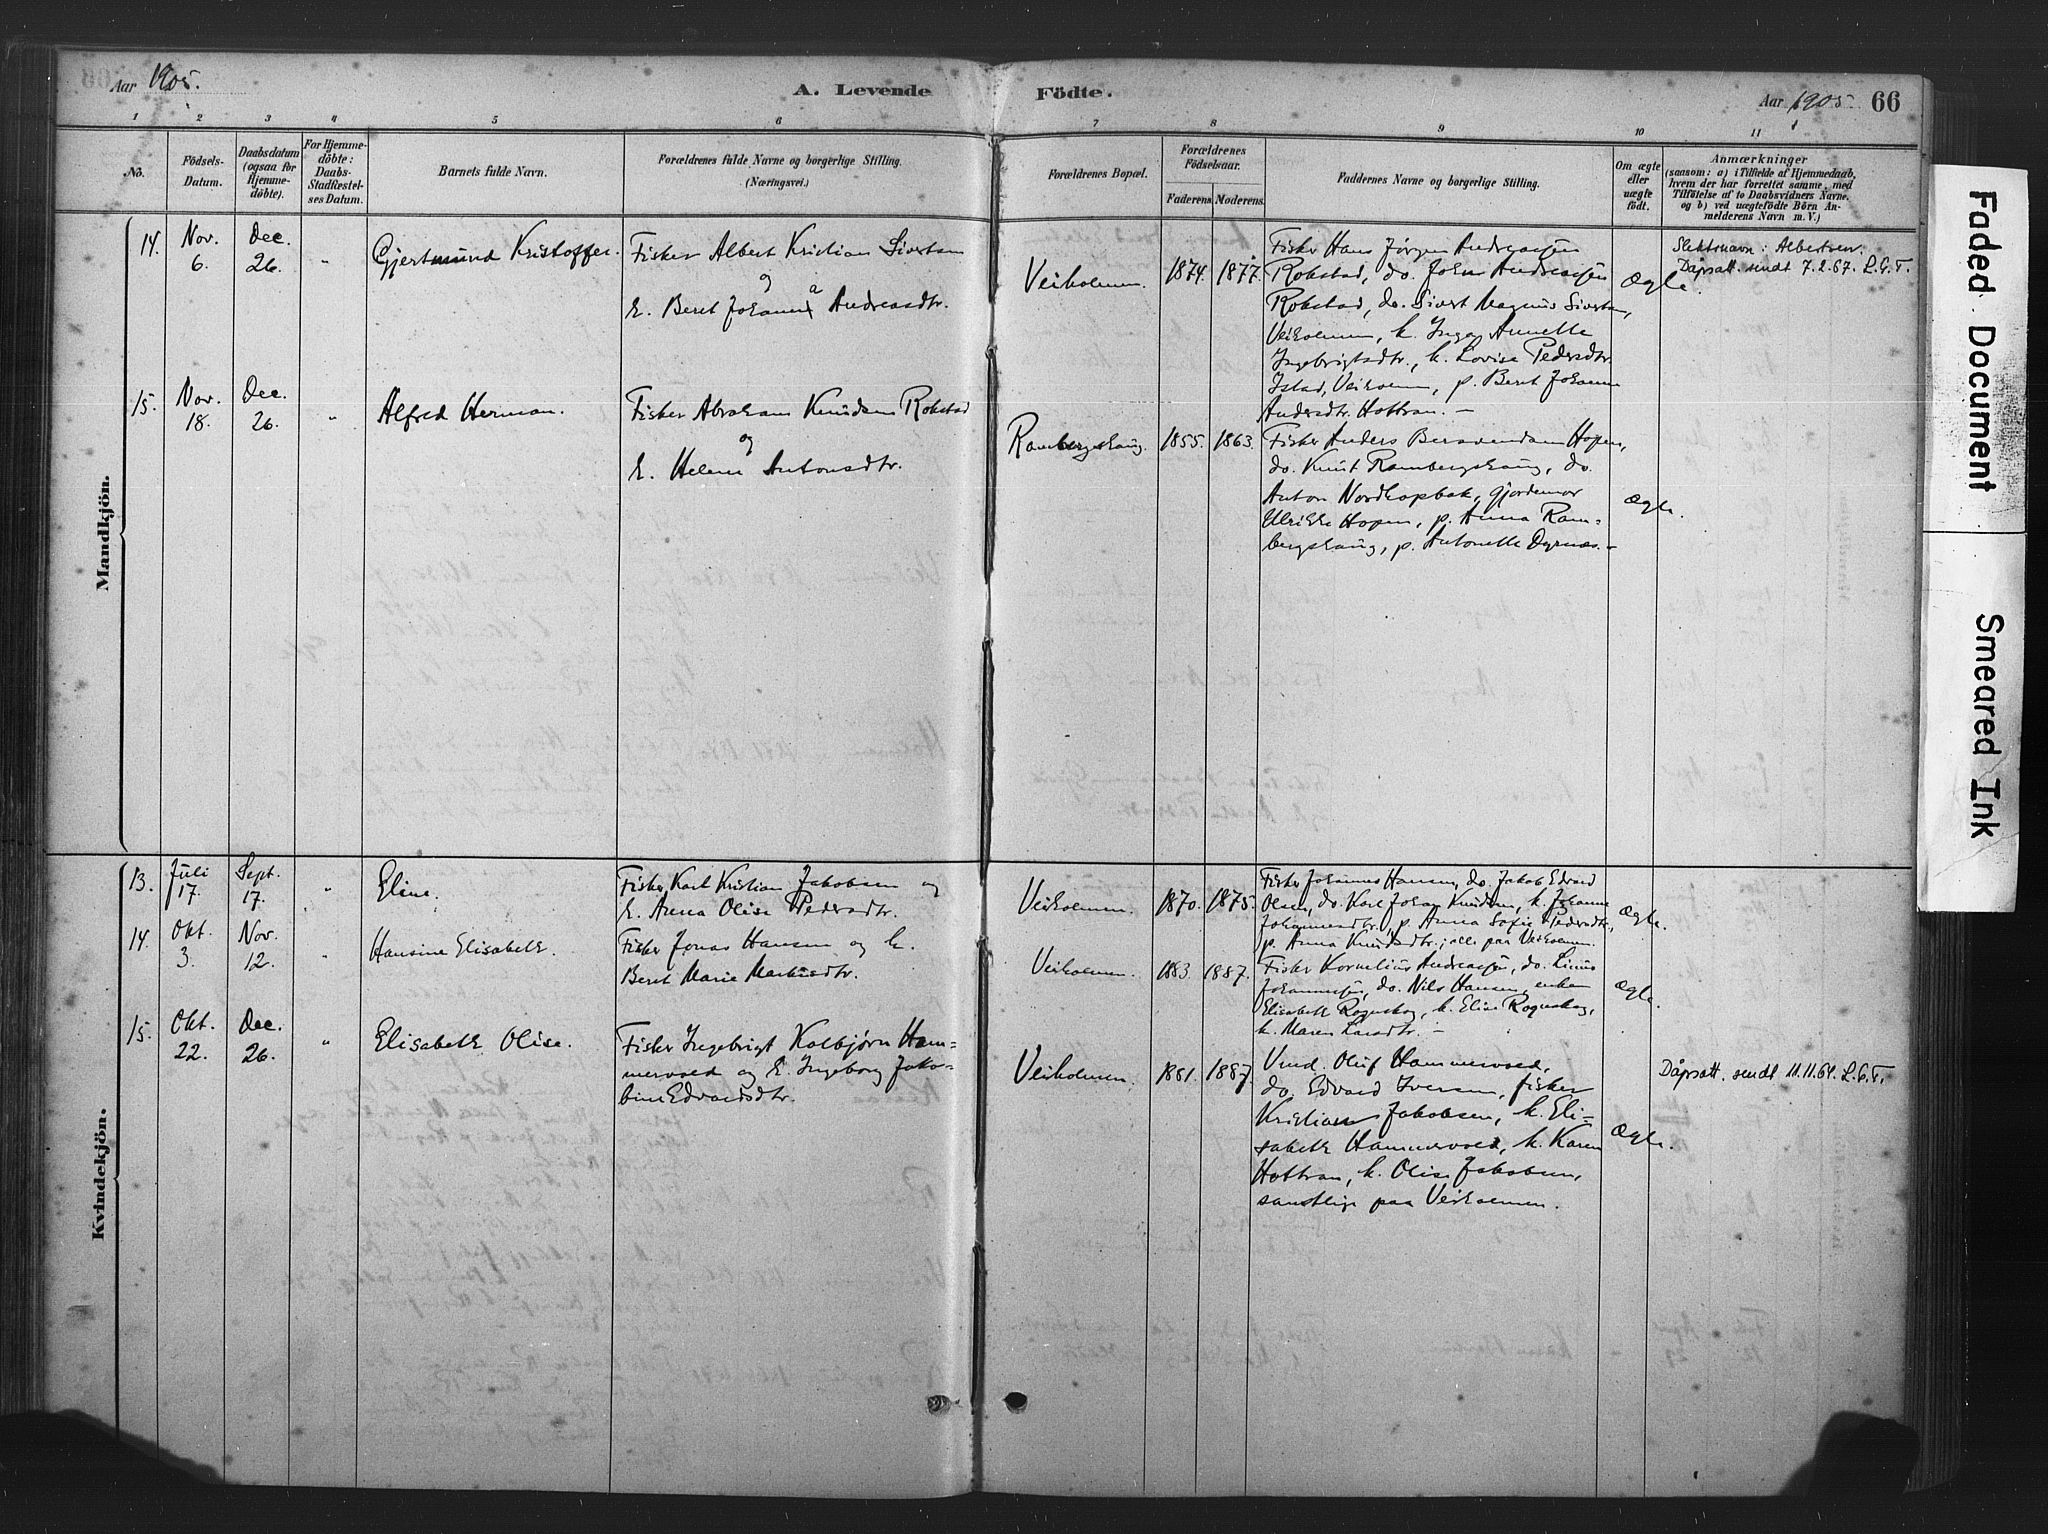 Aar 1905.
A. Levende Födte.
Aar 1905
66
1 2 3 4 5 6 7 8 9 10 11
No.
Födsels-Datum.
Daabsdatum (ogsaa for Hjemmedöbte).
For Hjemmedöbte: Daabs-Stadfæstelses Datum.
Barnets fulde Navn.
Forældrenes fulde Navne og borgerlige Stilling.
(Næringsvei.)
Forældrenes Bopæl.
Forældrenes Födselsaar.
Faderens. Moderens.
Faddernes Navne og borgerlige Stilling.
Om ægte eller uægte födt.
Anmærkninger
(saasom: a) i Tilfælde af Hjemmedaab,
hvem der har forrettet samme, med
Tilföielse af to Daabsvidners Navne.
og b) ved uægtefödte Börn Anmelderens Navn m. V.)
Mandkjön.
14. Nov. 6. Dec. 26. "
Gjertmund Kristoffer.
Fisker Albert Kristian Sivertsen
og
k. Beret Johanna Andreasdtr.
Veiholmen. 1874. 1877.
Fisker Hans Jørgen Andreassen
Rokstad, do. Johan Andreassen
Rokstad, do. Sivert Magnus Sivertsen,
Veiholmen, k. Inga Annette
Ingebrigtsdtr., k. Lovise Pedersdtr.
Istad, Veiholmen, p. Beret Johanna
Andersdtr. Hottran. –
Ægte.
Slektsnavn: Albertsen.
Dåpsatt. sendt 7.2.67. L.G.T.
15. Nov. 18. Dec. 26. "
Alfred Herman.
Fisker Abraham Knudsen Rokstad
og
k. Helene Antonsdtr.
Rambergshaug. 1855. 1863.
Fisker Anders Berntsen Hopen,
do. Knut Rambergshaug, do.
Anton Nordhopbak, gjordemor
Ulrikke Hopen, p. Anna Rambergshaug, p. Antonette Dyrnæs. –
Ægte.
Kvindekjön.
13. Juli 17. Sept. 17. "
Eline.
Fisker Karl Kristian Jakobsen og
k. Anna Olise Pedersdtr.
Veiholmen. 1870. 1875.
Fisker Johannes Hansen, do. Jakob Edvard
Olsen, do. Karl Johan Knudsen, k. Johanne
Johannesdtr., p. Anna Sofie Pedersdtr.,
p. Anna Knudsdtr.; alle paa Veiholmen.
Ægte.
14. Okt. 3. Nov. 12. "
Hansine Elisabeth.
Fisker Jonas Hansen og k.
Beret Marie Markusdtr.
Veiholmen. 1883. 1887.
Fisker Kornelius Andreassen, do. Linus
Johannessen, do. Nils Hansen, enken
Elisabeth Roquskog, k. Elise Roquskog,
k. Maren Larsdtr. –
Ægte.
15. Okt. 22. Dec. 26. "
Elisabeth Olise.
Fisker Ingebrigt Kolbjørn Hammervold og k. Ingeborg Jakobine Edvardsdtr.
Veiholmen. 1881. 1887.
Vmd. Oluf Hammervold,
do. Edvard Iversen, fisker
Kristian Jakobsen, k. Elisabeth Hammervold, k. Karen
Hottran, k. Olise Jakobsen,
samtlige paa Veiholmen.
Ægte.
Dåpsatt. sendt 11.11.64. L.G.T.
Faded Document
Smeared Ink